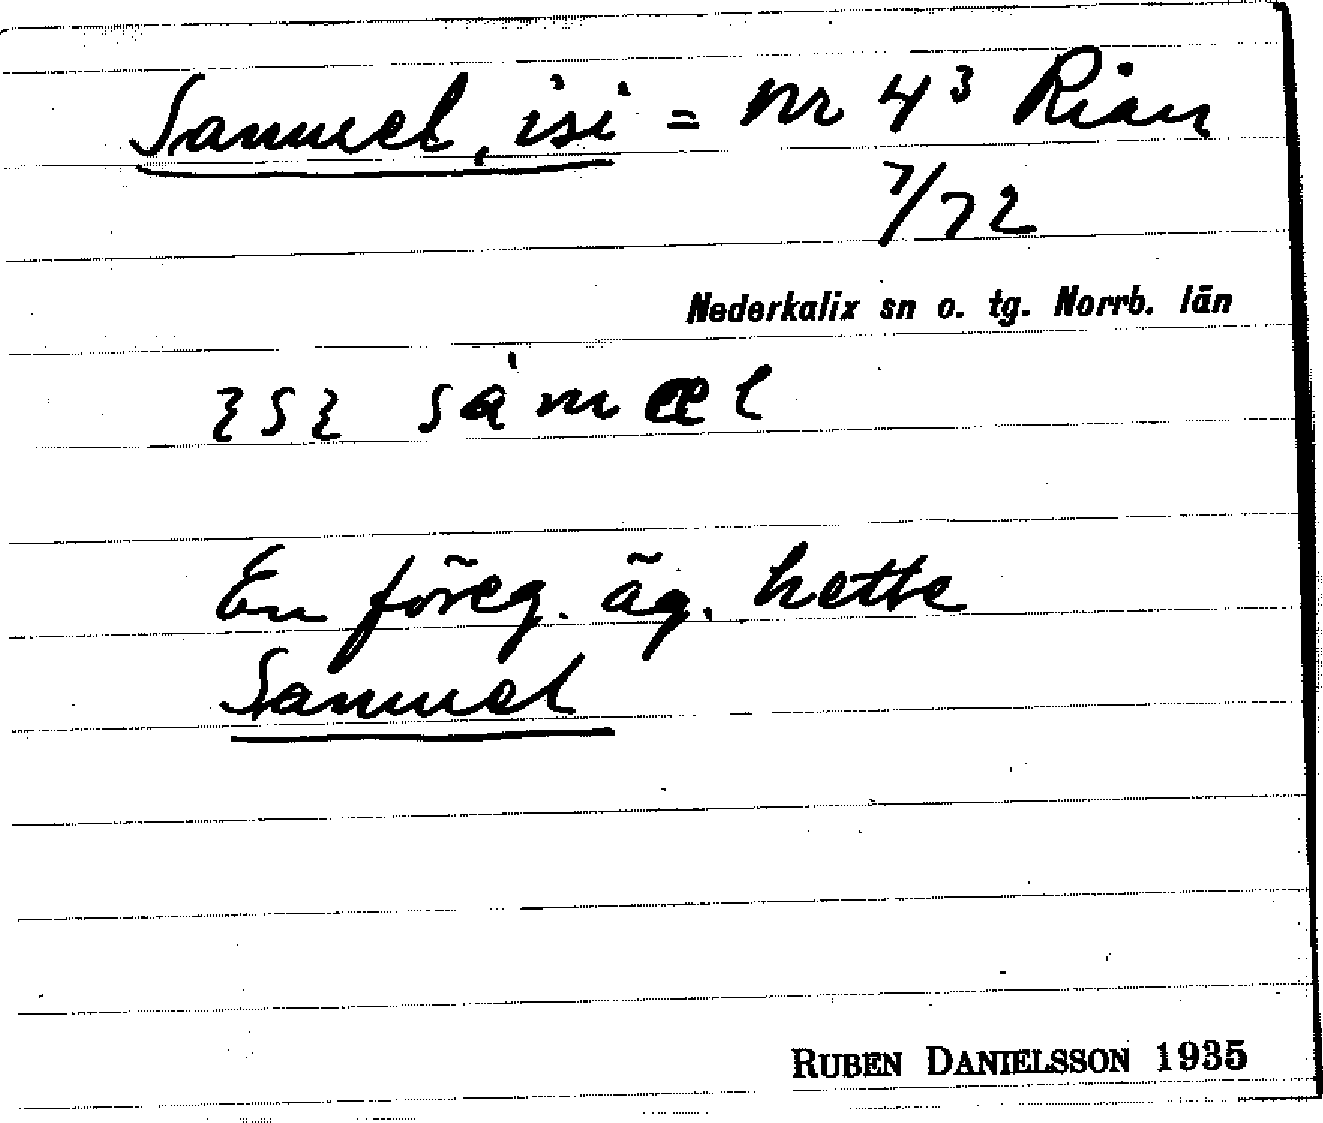 Samuel, isi = nr 4³ Rian
7/72
Nederkalix sn o. tg. Norrb. län
sàmæl
En föreg. äg. hette
Samuel
RUBEN DANIELSSON 1935